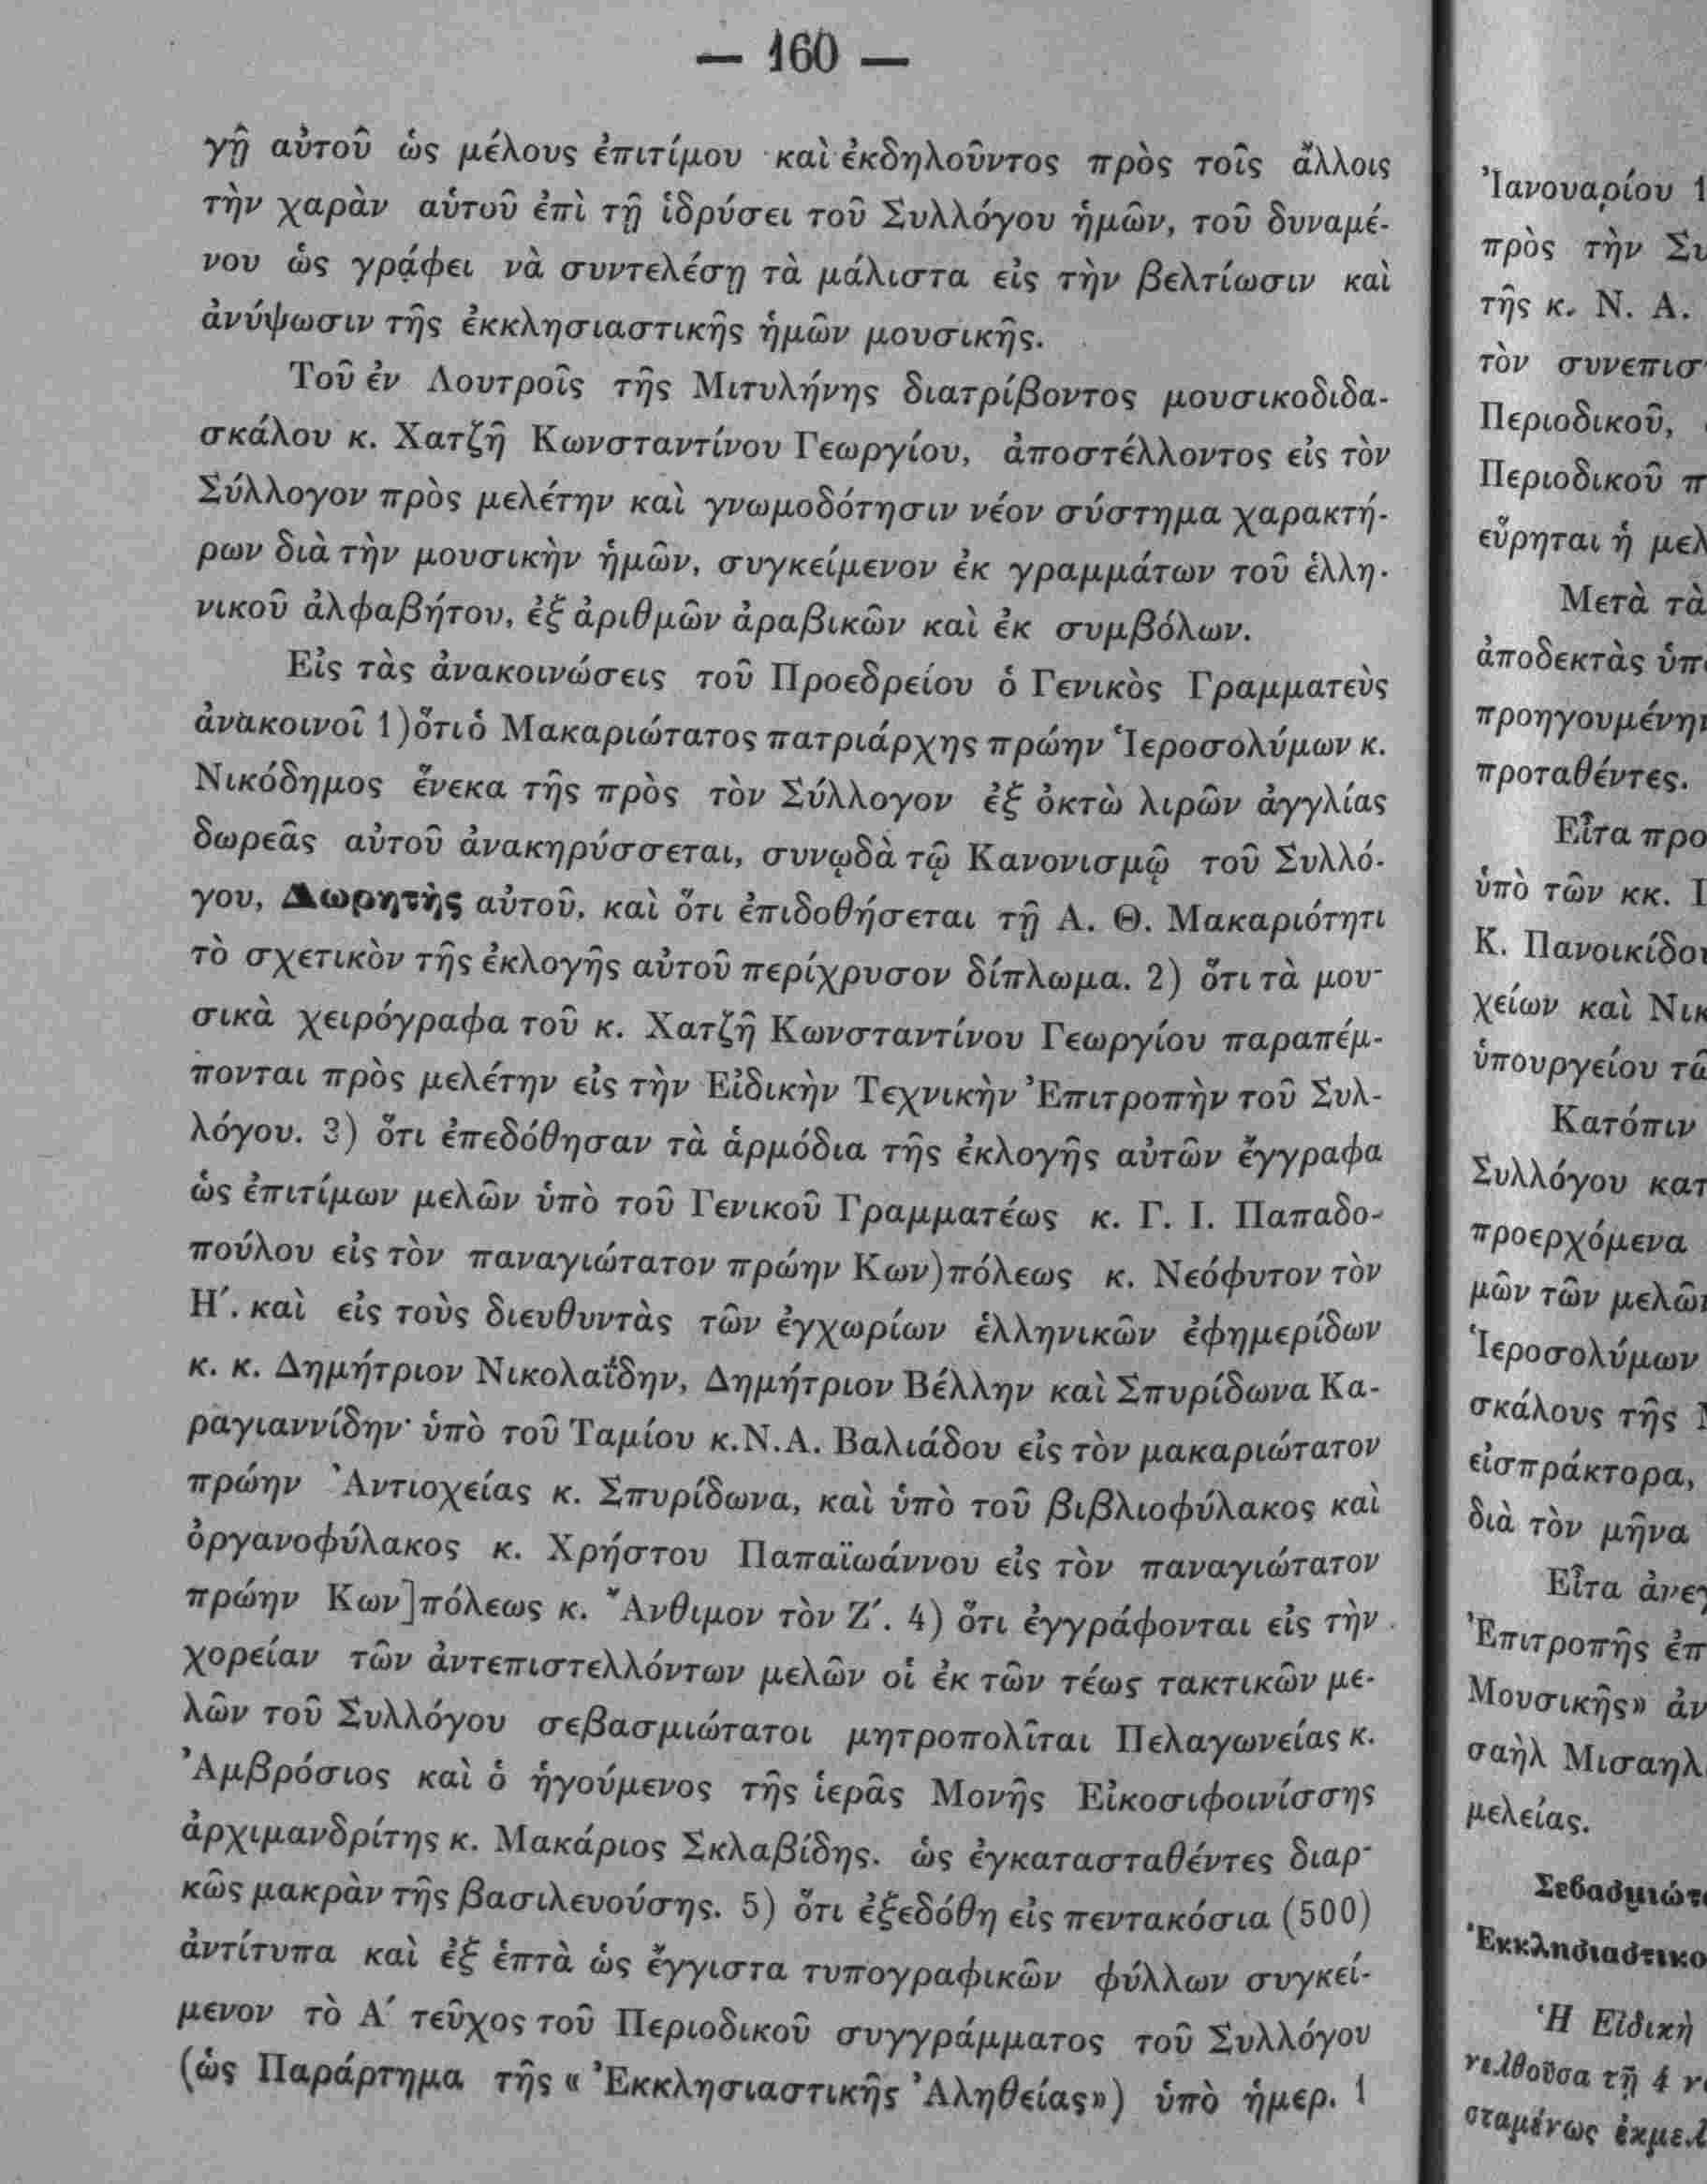 — 160 —
γῇ αὐτοῦ ὡς μέλους ἐπιτίμου καὶ ἐκδηλοῦντος πρὸς τοῖς ἄλλοις
τὴν χαρὰν αὑτοῦ ἐπὶ τῇ ἱδρύσει τοῦ Συλλόγου ἡμῶν, τοῦ δυναμέ-
νου ὡς γράφει νὰ συντελέσῃ τὰ μάλιστα εἰς τὴν βελτίωσιν καὶ
ἀνύψωσιν τῆς ἐκκλησιαστικῆς ἡμῶν μουσικῆς.
Τοῦ ἐν Λουτροῖς τῆς Μιτυλήνης διατρίβοντος μουσικοδιδα-
σκάλου κ. Χατζῆ Κωνσταντίνου Γεωργίου, ἀποστέλλοντος εἰς τὸν
Σύλλογον πρὸς μελέτην καὶ γνωμοδότησιν νέον σύστημα χαρακτή-
ρων διὰ τὴν μουσικὴν ἡμῶν, συγκείμενον ἐκ γραμμάτων τοῦ ἑλλη-
νικοῦ ἀλφαβήτου, ἐξ ἀριθμῶν ἀραβικῶν καὶ ἐκ συμβόλων.
Εἰς τὰς ἀνακοινώσεις τοῦ Προεδρείου ὁ Γενικὸς Γραμματεὺς
ἀνακοινοῖ 1) ὅτι ὁ Μακαριώτατος πατριάρχης πρώην Ἱεροσολύμων κ.
Νικόδημος ἕνεκα τῆς πρὸς τὸν Σύλλογον ἐξ ὀκτὼ λιρῶν ἀγγλίας
δωρεᾶς αὐτοῦ ἀνακηρύσσεται, συνῳδὰ τῷ Κανονισμῷ τοῦ Συλλό-
γου, Δωρητὴς αὐτοῦ, καὶ ὅτι ἐπιδοθήσεται τῇ Α. Θ. Μακαριότητι
τὸ σχετικὸν τῆς ἐκλογῆς αὐτοῦ περίχρυσον δίπλωμα. 2) ὅτι τὰ μου-
σικὰ χειρόγραφα τοῦ κ. Χατζῆ Κωνσταντίνου Γεωργίου παραπέμ-
πονται πρὸς μελέτην εἰς τὴν Εἰδικὴν Τεχνικὴν Ἐπιτροπὴν τοῦ Συλ-
λόγου. 3) ὅτι ἐπεδόθησαν τὰ ἁρμόδια τῆς ἐκλογῆς αὐτῶν ἔγγραφα
ὡς ἐπιτίμων μελῶν ὑπὸ τοῦ Γενικοῦ Γραμματέως κ. Γ. Ι. Παπαδο-
πούλου εἰς τὸν παναγιώτατον πρώην Κων)πόλεως κ. Νεόφυτον τὸν
Η΄. καὶ εἰς τοὺς διευθυντὰς τῶν ἐγχωρίων ἑλληνικῶν ἐφημερίδων
κ. κ. Δημήτριον Νικολαΐδην, Δημήτριον Βέλλην καὶ Σπυρίδωνα Κα-
ραγιαννίδην· ὑπὸ τοῦ Ταμίου κ.Ν.Α. Βαλιάδου εἰς τὸν μακαριώτατον
πρώην Ἀντιοχείας κ. Σπυρίδωνα, καὶ ὑπὸ τοῦ βιβλιοφύλακος καὶ
ὀργανοφύλακος κ. Χρήστου Παπαϊωάννου εἰς τὸν παναγιώτατον
πρώην Κων]πόλεως κ. Ἄνθιμον τὸν Ζ΄. 4) ὅτι ἐγγράφονται εἰς τὴν
χορείαν τῶν ἀντεπιστελλόντων μελῶν οἱ ἐκ τῶν τέως τακτικῶν με-
λῶν τοῦ Συλλόγου σεβασμιώτατοι μητροπολῖται Πελαγωνείας κ.
Ἀμβρόσιος καὶ ὁ ἡγούμενος τῆς ἱερᾶς Μονῆς Εἰκοσιφοινίσσης
ἀρχιμανδρίτης κ. Μακάριος Σκλαβίδης. ὡς ἐγκατασταθέντες διαρ-
κῶς μακρὰν τῆς βασιλευούσης. 5) ὅτι ἐξεδόθη εἰς πεντακόσια (500)
ἀντίτυπα καὶ ἐξ ἑπτὰ ὡς ἔγγιστα τυπογραφικῶν φύλλων συγκεί-
μενον τὸ Α΄ τεῦχος τοῦ Περιοδικοῦ συγγράμματος τοῦ Συλλόγου
(ὡς Παράρτημα τῆς « Ἐκκλησιαστικῆς Ἀληθείας») ὑπὸ ἡμερ. 1
Ἰανουαρίου 1
πρὸς τὴν
τῆς κ. Ν. Α.
τὸν
Περιοδικοῦ,
Περιοδικοῦ
εὕρηται ἡ
Μετὰ τὰ
ἀποδεκτὰς
προταθέντες.
Εἶτα
ὑπὸ τῶν κκ.
Κ.
χείων καὶ
ὑπουργείου
Κατόπιν
Συλλόγου
προερχόμενα
μῶν τῶν
Ἱεροσολύμων
σκάλους τῆς
εἰσπράκτορα,
διὰ τὸν μῆνα
Εἶτα
Ἐπιτροπῆς
Μουσικῆς»
σαὴλ
μελείας.
Ἡ Εἰδικὴ
νελθοῦσα τῇ 4
σταμένως